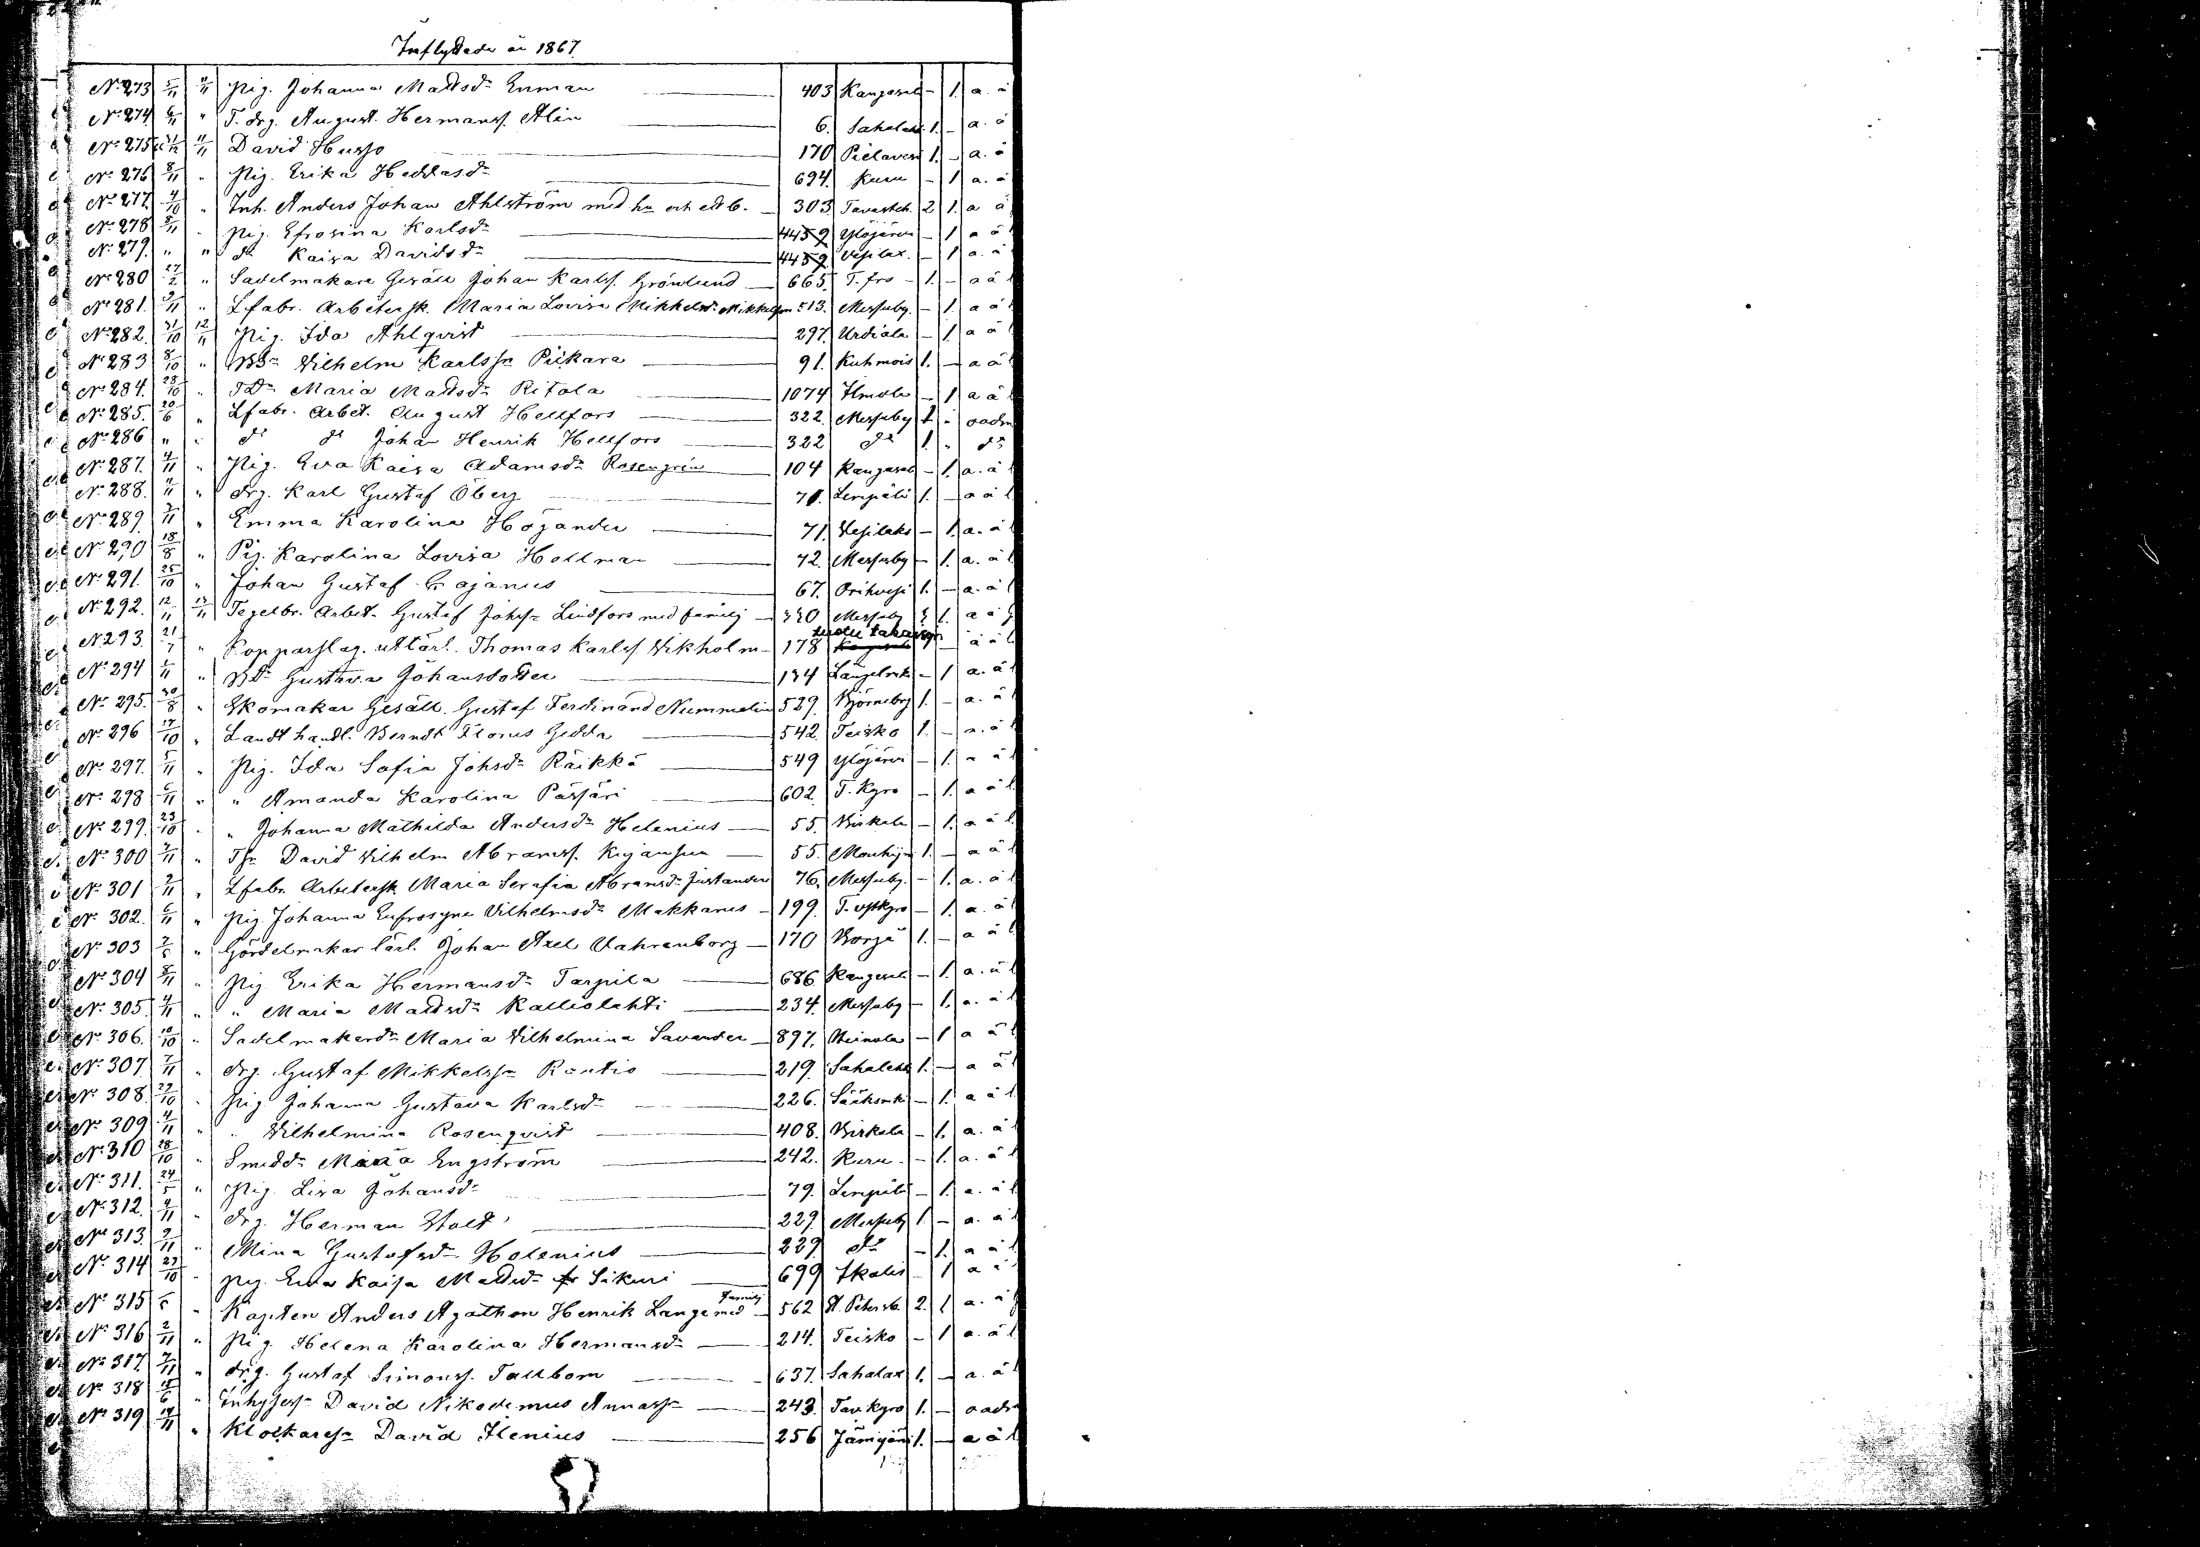 Inflyttade år 1867.
No 273 5/11 11/11 Pig. Johanna Mattsdr Enman 403 Kangasal - 1. a. ä
No 274 6/11 " T. drg. August Hermanss. Alin 6. Sahalax 1. - a. ä
No 275 11/11 David Husso 170 Pielavesi 1. - a. ä
No 276 8/11 " Pig. Erika Heddasdr 694. Kuru - 1 a. ä
No 277. 4/10 " Inh. Anders Johan Ahlström med hu och ett b. 303. Tavasteh. 2 1. a ä
No 278 8/11 " Pig. Efrosina Karlsdr 4459 Ylöjärvi - 1 a ä
No 279. " " do Kaisa Davidsdr 4459 Vesilax. - 1 a. ä
No 280 27/2 " Sadelmakare Gesäll Johan Karlss. Grönlund 665. T.fro - 1. - a ä l
No 281. 9/11 " Lfabr. Arbetersk. Maria Lovisa Mikkelsdr Mikkelson 513. Messuby. - 1. a ä l
No 282. 31/10 12/11 Pig. Ida Ahlqvist 297. Urdiala - 1 a ä l
No 283 8/10 " Bdr Vilhelm Karlsson Pitkara 91. Kuhmois 1. - a ä l
No 284. 28/10 " Tdr Maria Mattsdr Ritola 1074 Ilmola - 1 a ä l
No 285. 20/6 " Lfabr. Arbet. August Hellfors 322. Messuby 1 - oadm
No 286 " " do do Johan Henrik Hellfors 322 do 1. " do
No 287. 4/11 " Pig. Eva Kaisa Adamsdr Rosengrén 104 Kangasal - 1. a. ä l
No 288. 4/11 " drg. Karl Gustaf Öberg 71. Lempälä 1. - a ä l
No 289. 7/11 " Emma Karolina Höjander 71. Vesilaks - 1. a. ä l
No 290 18/8 " Pig. Karolina Lovisa Hollman 72. Messuby - 1. a. ä l
No 291. 25/10 " Johan Gustaf Cajanus 67. Orihvesi 1. - a. ä l
No 292. 12/11 13/11 Tegelbr. Arbet. Gustaf Johss. Lindfors med familj 320 Messuby 1. a ä
No 293. 21/7 " Kopparslag. utlärl. Thomas Karlss Vikholm 178 1 - a ä l
No 294 5/11 " Bdr Gustava Johansdotter 134 Längelmk - 1 a. ä l
No 295. 30/8 " Skomakar Gesäll. Gustaf Ferdinand Nummelin 529. Björneborg 1. - a. ä
No 296 17/10 " Landthandl. Berndt Florus Gedda 542. Teisko 1. - a. ä l
No 297. 5/11 " Pig. Ida Sofia Johsdr Räikkä 549 Ylöjärvi - 1. a ä l
No 298 6/11 " " Amanda Karolina Pässäri 602. T. Kyro - 1. a ä l
No 299. 23/10 " " Johanna Mathilda Andersdr Helenius 55. Birkala - 1. a ä l
No 300 7/11 " Tss. David Vilhelm Abramss. Kujansuu 55. Mouhij. 1. - a ä l
No 301 9/11 " Lfabr. Arbetersk. Maria Serafia Abramsdr Justander 76. Messuby. - 1. a. ä l
No 302. 6/11 " Pig. Johanna Eufrosyne Vilhelmsdr Makkanes 199. T. Kyro - 1. a. ä l
No 303 7/5 " Gördelmakar lärl. Johan Axel Vahrenborg 170 Borgå 1. - a ä l
No 304 8/11 " Pig. Erika Hermansdr Tarpila 686 Kangasal - 1. a. ä l
No 305. 4/11 " " Maria Mattsdr Kalliolahti 234. Messuby - 1. a. ä l
No 306. 10/10 " Sadelmakardr Maria Vilhelmina Savander 897. Heinola - 1 a ä l
No 307. 7/11 " drg. Gustaf Mikkelss. Rantio 219. Sahalaht 1. - a ä l
No 308. 29/10 " Pig Johanna Gustava Karlsdr 226. Sääksmk - 1. a ä l
No 309 4/11 " " Vilhelmina Rosenqvist 408. Birkala - 1. a. ä l
No 310 28/10 " Smeddr Maria Engström 242. Kuru - 1. a. ä l
No 311. 24/5 " Pig. Lisa Johansdr 79. Lempälä - 1. a. ä l
No 312. 9/11 " drg. Herman Stolt 229. Messuby 1. - a. ä l
No 313. 9/11 " Mina Gustafsdr Holenius 229. do - 1. a ä l
No 314 29/10 " Pig. Eva Kaisa Mattsdr Sikuri 699 Ikalis - 1 a ä
No 315 " Kapten Anders Agathon Henrik Lange med familj 562 St. Petersb. 2. 1 a. ä
No 316 2/11 " Pig. Helena Karolina Hermansdr 214. Teisko - 1 a. ä l
No 317. 7/11 " drg. Gustaf Simonss. Tallbom 637. Sahalax 1. - a. ä l
No 318 15/6 " Inhysess. David Nikodemus Annass. 243. Tav. Kyro 1. - oadm
No 319 14/11 " Klockaress. David Ilenius 256 Jämijärvi 1. - a ä l